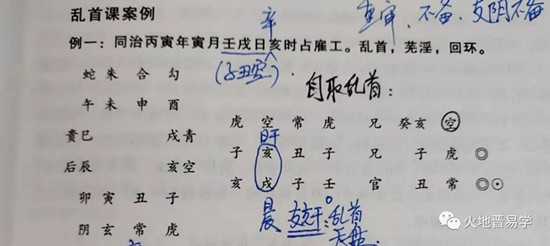 重审、不备、支阴不备
乱首课案例
辛
例一：同治丙寅年寅月壬戌日亥时占雇工。乱首，芜淫，回环。
（子丑空）
自取乱首：
蛇 朱 合 勾
午 未 申 酉
虎 空 常 虎 兄 癸亥 空
貴巳 戌青
日干
子 亥 丑 子 兄 子 虎 ◎
后辰 亥空
亥 戌 子 壬 官 丑 常 ◎⊙
卯 寅 丑 子
晨 支 干：乱首
阴 玄 常 虎
火地晋易学